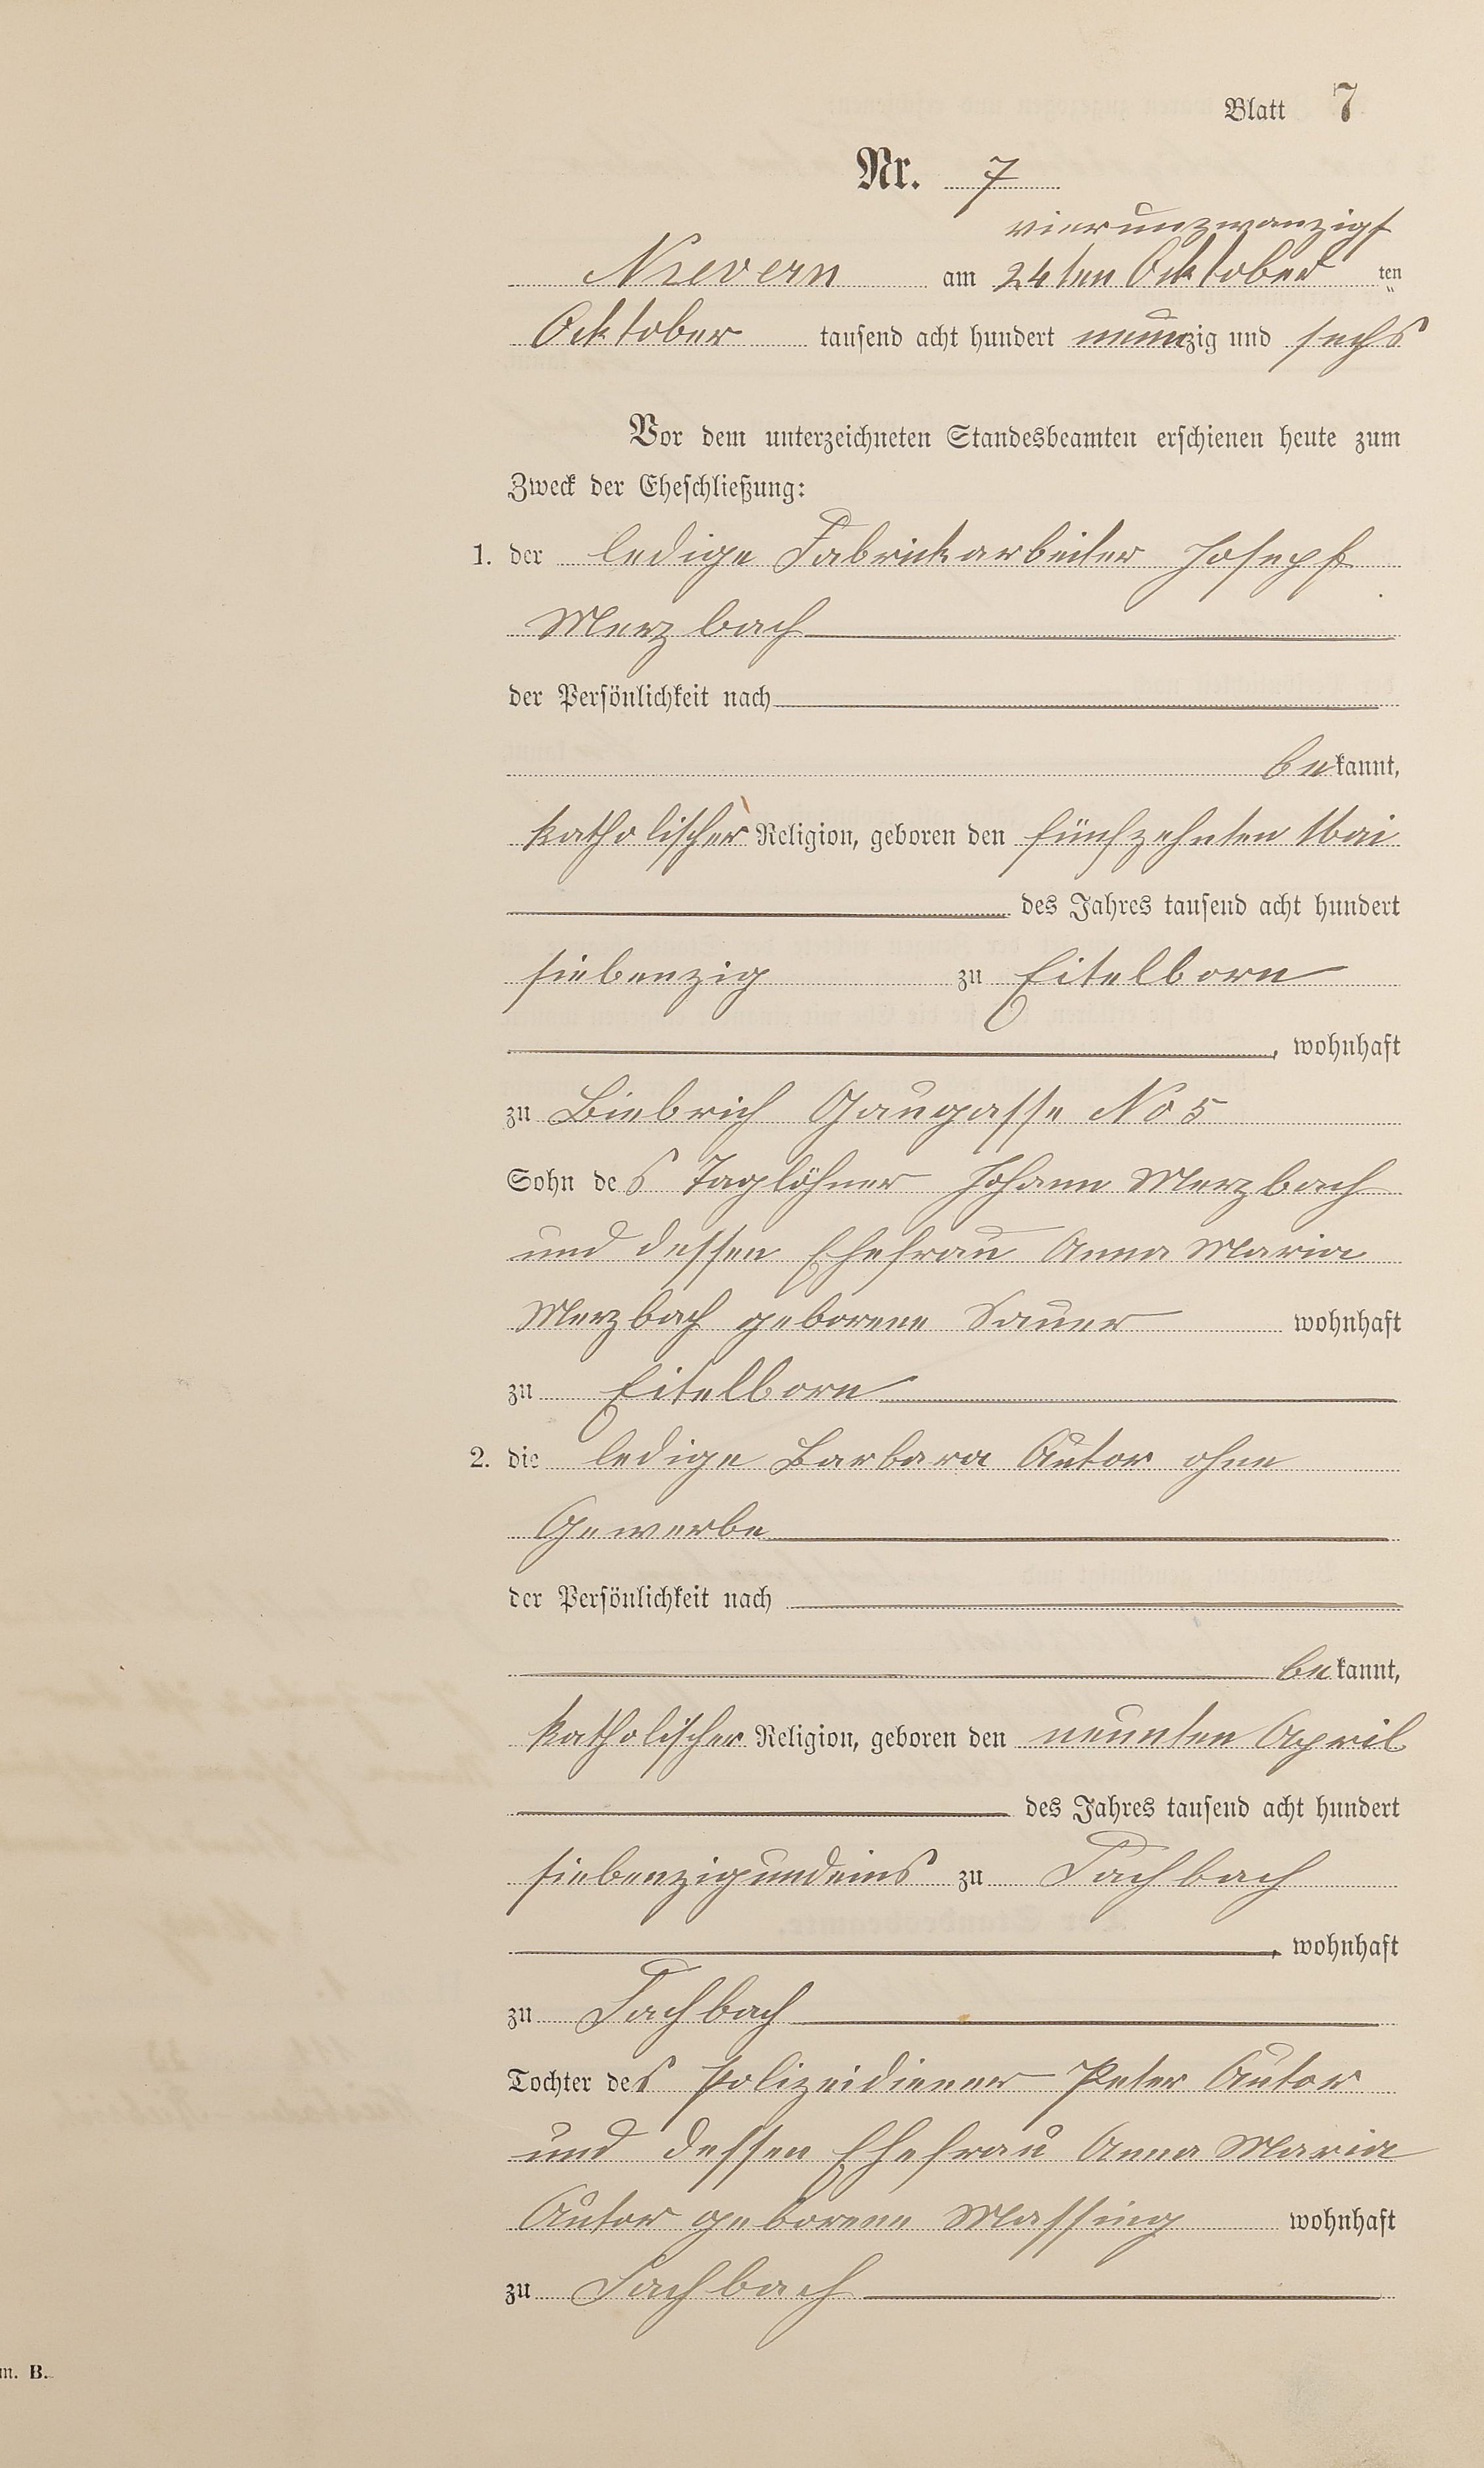 Blatt 7
Nr. 7
vierunzwanzigt
Nievern am 24ten Oktober ten
Oktober tausend acht hundert neunzig und sechs
Vor dem unterzeichneten Standesbeamten erschienen heute zum
Zweck der Eheschließung:
1. der ledige Fabrickarbeiter Josepf
Merzbach
der Persönlichkeit nach
bekannt,
katholischer Religion, geboren den fünfzehnten Mai
des Jahres tausend acht hundert
siebenzig zu Eitelborn
, wohnhaft
zu Biebrich Gaugasse No 5
Sohn des Taglöhner Johann Merzbach
und dessen Ehefrau Anna Maria
Merzbach geborene Sauer wohnhaft
zu Eitelborn
2. die ledige Barbara Autor ohne
Gewerbe
der Persönlichkeit nach
bekannt,
katholischer Religion, geboren den neunten April
des Jahres tausend acht hundert
siebenzigundeins zu Fachbach
, wohnhaft
zu Fachbach
Tochter des Polizeidiener Peter Autor
und dessen Ehefrau Anna Maria
Autor geborene Massing wohnhaft
zu Fachbach
m. B.